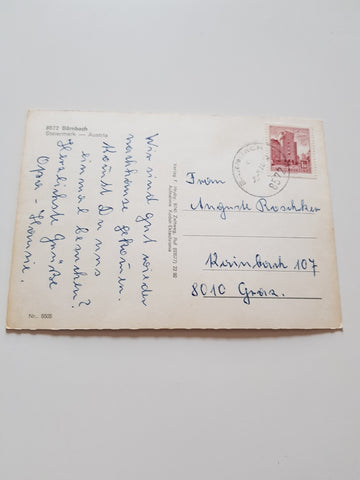 8572 Bärnbach
Steiermark — Austria
Wir sind gut wieder
nachhause gekommen.
Kommst Du uns
einmal besuchen?
Herzlichste Grüße
Opa -
Nr. 5505
Frau
Auguste Roschker
Kainbach 107
8010 Graz.